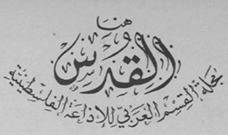 هنا
القدس
مجلة القسم العربي للإذاعة الفلسطينية